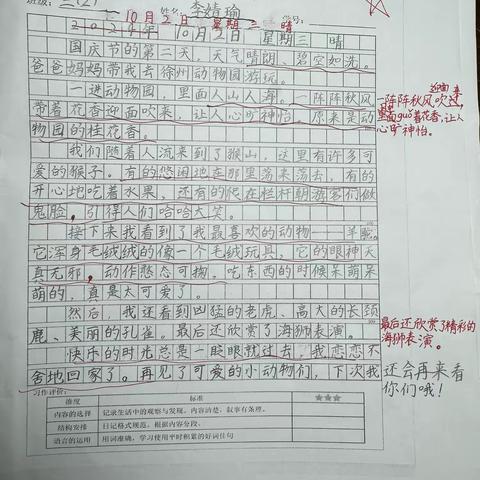 班级：三(2) 姓名：李婧瑜 学号：
10月2日 星期三 晴
2024年10月2日 星期三 晴
国庆节的第二天，天气晴朗、碧空如洗。
爸爸妈妈带我去徐州动物园游玩。
一进动物园，里面人山人海。一阵阵秋风
带着花香迎面吹来，让人心旷神怡。原来是动
物园的桂花香。
迎面 来
一阵阵秋风吹过，
里面guǒ着花香，让人
心旷神怡。
我们随着人流来到了猴山，这里有许多可
爱的猴子。有的悠闲地在那里荡来荡去，有的
开心地吃着水果，还有的爬在栏杆朝游客们做
鬼脸，引得人们哈哈大笑。
接下来我看到了我最喜欢的动物——羊驼。
它浑身毛绒绒的像一个毛绒玩具，它的眼神天
真无邪，动作憨态可掬，吃东西的时候呆萌呆
萌的，真是太可爱了。
然后，我还看到凶猛的老虎、高大的长颈
鹿、美丽的孔雀。最后还欣赏了海狮表演。
最后还欣赏了精彩的
海狮表演。
快乐的时光总是一眨眼就过去，我恋恋不
舍地回家了。再见了可爱的小动物们，下次我
还会再来看
你们哦！
习作评价：
维度 标准 ★★★
内容的选择 记录生活中的观察与发现，内容清楚，叙事有条理。
结构安排 日记格式规范，根据内容分段。
语言的运用 用词准确，学习使用平时积累的好词佳句